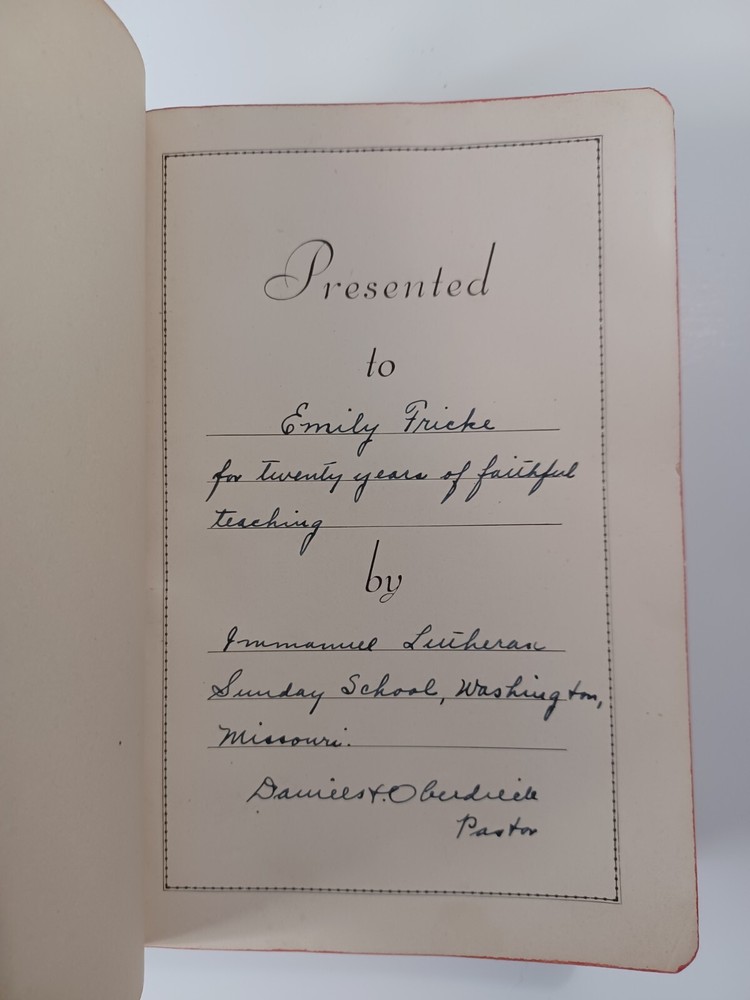 Presented
to
Emily Fricke
for twenty years of faithful
teaching
by
Immanuel Lutheran
Sunday School, Washington,
Missouri.
Pastor